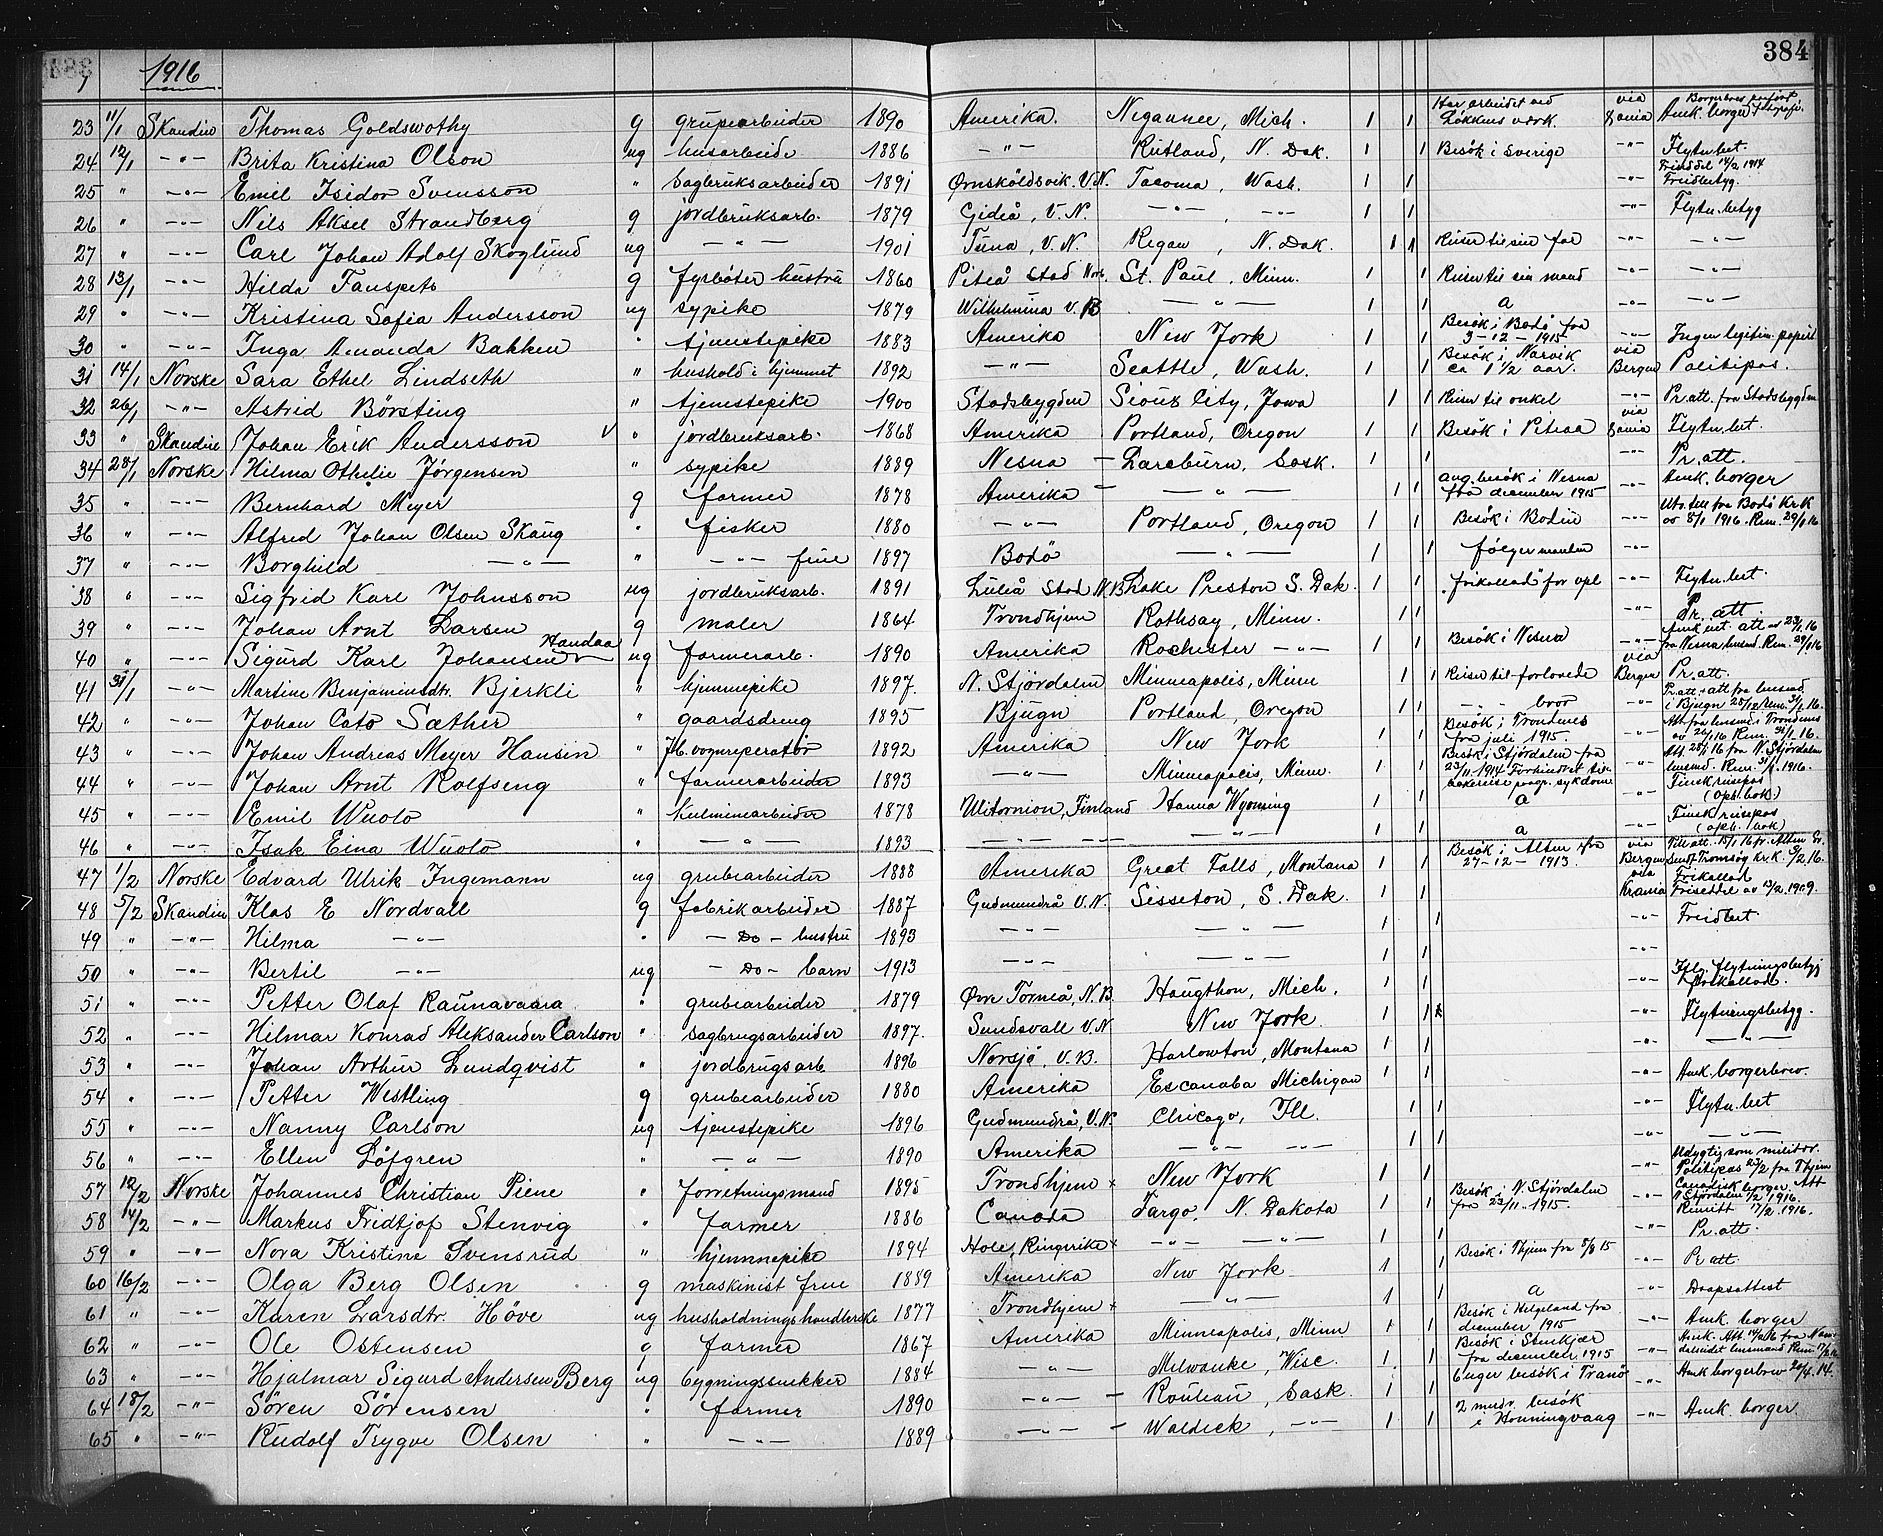 384
1916
23 11/1 Skandin Thomas Goldswothy g grubearbeider 1890 Amerika Negaunee, Mich. 1 1 Har arbeidet ved Løkkens værk. via Xania Amk. borger
24 12/1 -"- Brita Kristina Olson ug husarbeide 1886 -"- Rutland, N. Dak. 1 1 Besøk i Sverige -"- Flytn.bet.
25 " -"- Emil Isidor Svensson " sagbruksarbeider 1891 Ørnsköldsvik. V.N. Tacoma, Wash. 1 1 -"- Frisedel 14/2 1914 Freidbetyg.
26 " -"- Nils Aksel Strandberg g jordbruksarb. 1879 Gideå, V.N. -"- , -"- 1 1 -"- Flytn.betyg
27 " -"- Carl Johan Adolf Skoglund ug -"- 1901 Tuna, V.N. Regan, N. Dak. 1 1 Reiser til sin far -"- -"-
28 13/1 -"- Hilda Fanspets g fyrbøter hustru 1860 Piteå Stad Norb. St. Paul, Minn. 1 1 Reiser til sin mand -"- -"-
29 " -"- Kristina Sofia Andersson ug sypike 1879 Wilhelmina V.B -"- 1 1 a -"- -"-
30 " -"- Inga Amanda Bakken " tjenestepike 1883 Amerika New York 1 1 Besøk i Bodø fra 3-12-1915 -"- Ingen legitim. papirer
31 14/1 Norske Sara Ethel Lindseth " hushold i hjemmet 1892 -"- Seattle, Wash. 1 1 Besøk i Narvik ca 1 1/2 aar. via Bergen Politipas.
32 26/1 -"- Astrid Børsting " tjenestepike 1900 Stadsbygden Sioux City, Jowa 1 1 Reiser til onkel -"- Pr. att. fra Stadsbygden
33 " Skandin Johan Erik Andersson " jordbruksarb. 1868 Amerika Portland, Oregon 1 1 Besøk i Piteaa via Xania Flytn.bet.
34 28/1 Norske Hilma Othelie Jørgensen " sypike 1889 Nesna - Lareburn, Sask. 1 1 -"- Pr. att.
35 " -"- Bernhard Meyer g farmer 1878 Amerika - -"- 1 1 Ang. besøk i Nesna fra december 1915 -"- Amk. borger
36 " -"- Alfred Johan Olsen Skaug " fisker 1880 -"- Portland, Oregon 1 1 Besøk i Bodin -"- Utv. till. fra Bodø Kr.K av 8/1 1916. Rem. 29/1 16
37 " -"- Borghild -"- " -"- frue 1897 Bodø -"- 1 1 følger manden -"-
38 " -"- Sigfrid Karl Johnsson ug jordbruksarb. 1891 Luleå Stad N.B. Lake Preston S. Dak. 1 1 "frikallad" for vpl -"- Flytn.bet.
39 " -"- Johan Arnt Larsen g maler 1864 Trondhjem Rothsay, Minn. 1 1 -"- Pr. att.
40 " -"- Sigurd Karl Johansen Handaa ug farmerarb. 1890 Amerika Rochester -"- 1 1 Besøk i Nesna -"- fra Nesna lensmd. Rem. 29/1 16
41 31/1 -"- Martine Benjaminsdtr. Bjerkli " hjemmepike 1897. N. Stjørdalen Minneapolis, Minn 1 1 Reiser til forlovede via Bergen Pr. att.
42 " -"- Johan Cato Sæther " gaardsdreng 1895 Bjugn Portland, Oregon 1 1 -"- bror -"- Pr. att + att fra lensmd. i Bjugn 28/12 Rem. 31/1.16.
43 " -"- Johan Andreas Meyer Hansen " Jb. vognreperatør 1892 Amerika New York 1 1 Besøk i Trondenes fra juli 1915. -"- Att. fra lensmd i Trondenes av 26/1 16 Rem. 31/1.16.
44 " -"- Johan Arnt Rolfseng " farmerarbeider 1893 -"- Minneapolis, Minn. 1 1 Besøk i Stjørdalen fra 23/11-1914 Forhindret tilbakereise pga. sykdom -"- Att. 28/1 16 fra N. Stjørdalen lensmd. Rem. 31/1. 1916.
45 " -"- Emil Wuolo " kulminearbeider 1878 Ulitornion, Finland Hanna Wyoming 1 1 a -"- Finsk reisepas (opb. bok.)
46 " -"- Isak Eina Wuolo " -"- 1893 -"- -"- -"- 1 1 a -"- Finsk reisepas (opb. bok)
47 1/2 Norske Edvard Ulrik Ingemann ug grubearbeider 1888 Amerika Great Falls, Montana 1 1 Besøk i Alten fra 27-12-1913. via Bergen
48 5/2 Skandin Klas E Nordvall g fabrikarbeider 1887 Gudmundrå V.N. Sisseton, S. Dak. 1 1 via Krania Frikallad Friseddel av 12/2.1909.
49 " -"- Hilma -"- " - Do - hustru 1893 -"- -"- 1 1 -"- Freidbet.
50 " -"- Bertil -"- ug - Do - barn 1913 -"- -"- 1 -"-
51 " -"- Petter Olaf Raunavaara " grubearbeider 1879 Øvre Torneå, N.B. Haugthon, Mich. 1 1 -"- Flytningsbetyg Frikallad.
52 " -"- Hilmar Konrad Aleksander Carlson " sagbrugsarbeider 1897. Sundsvall V.N New York. 1 1 -"- Flytningsbetyg.
53 " -"- Johan Arthur Lundqvist " jordbrugsarb 1896 Norsjö, V.B. Harlowton, Montana 1 1 -"- -"-
54 " -"- Petter Westling g grubearbeider 1880 Amerika Escanaba Michigan 1 1 -"- Amk. borgerbrev.
55 " -"- Nanny Carlson ug tjenestepike 1896 Gudmundrå, V.N. Chicago, Ill. 1 1 -"- Flytn.bet
56 " -"- Ellen Löfgren " -"- 1890 Amerika -"- -"- 1 1 -"- -"-
57 12/2 Norske Johannes Christian Piene " forretningsmand 1895 Trondhjem x New York 1 1 -"- Udygtig som militær. Politipas 23/2 fra Thjem
58 14/2 -"- Markus Fridtjof Stenvig " farmer 1886 Canada Fargo, N. Dakota 1 1 Besøk i N. Stjørdalen fra 23/11-1915. -"- Canadisk borger. Att N. Stjørdalen 1/2 1916. Remitt 17/2.1916.
59 " -"- Nora Kristine Svensrud " hjemmepike 1894 Hole, Ringerike x -"- -"- 1 1 -"- Pr. att.
60 16/2 -"- Olga Berg Olsen g maskinist frue 1889 Amerika New York 1 1 Besøk i Thjem fra 8/8 15 -"- Pr. att
61 " -"- Karen Larsdtr. Høve ug husholdningshandterke 1877 Trondhjem x -"- 1 1 a -"- Daapsattest
62 " -"- Ole Ostensen g farmer 1867 Amerika Minneapolis, Minn 1 1 Besøk i Helgeland fra december 1915 -"- Amk. borger
63 " -"- Hjalmar Sigurd Andersen Berg ug bygningssnekker 1884 -"- Milwauke, Wisc. 1 1 Besøk i Stenkjær fra december 1915 -"-
64 18/2 -"- Søren Sørensen " farmer 1890 -"- - Rouleau, Sask. 1 1 6 uger besøk i Tranø -"- Amk borgerbrev 20/4.14.
65 " -"- Rudolf Trygve Olsen " -"- 1889 -"- - Waldeck, -"- 1 1 2 mndr. besøk i Honningvaag -"- Amk. borger.